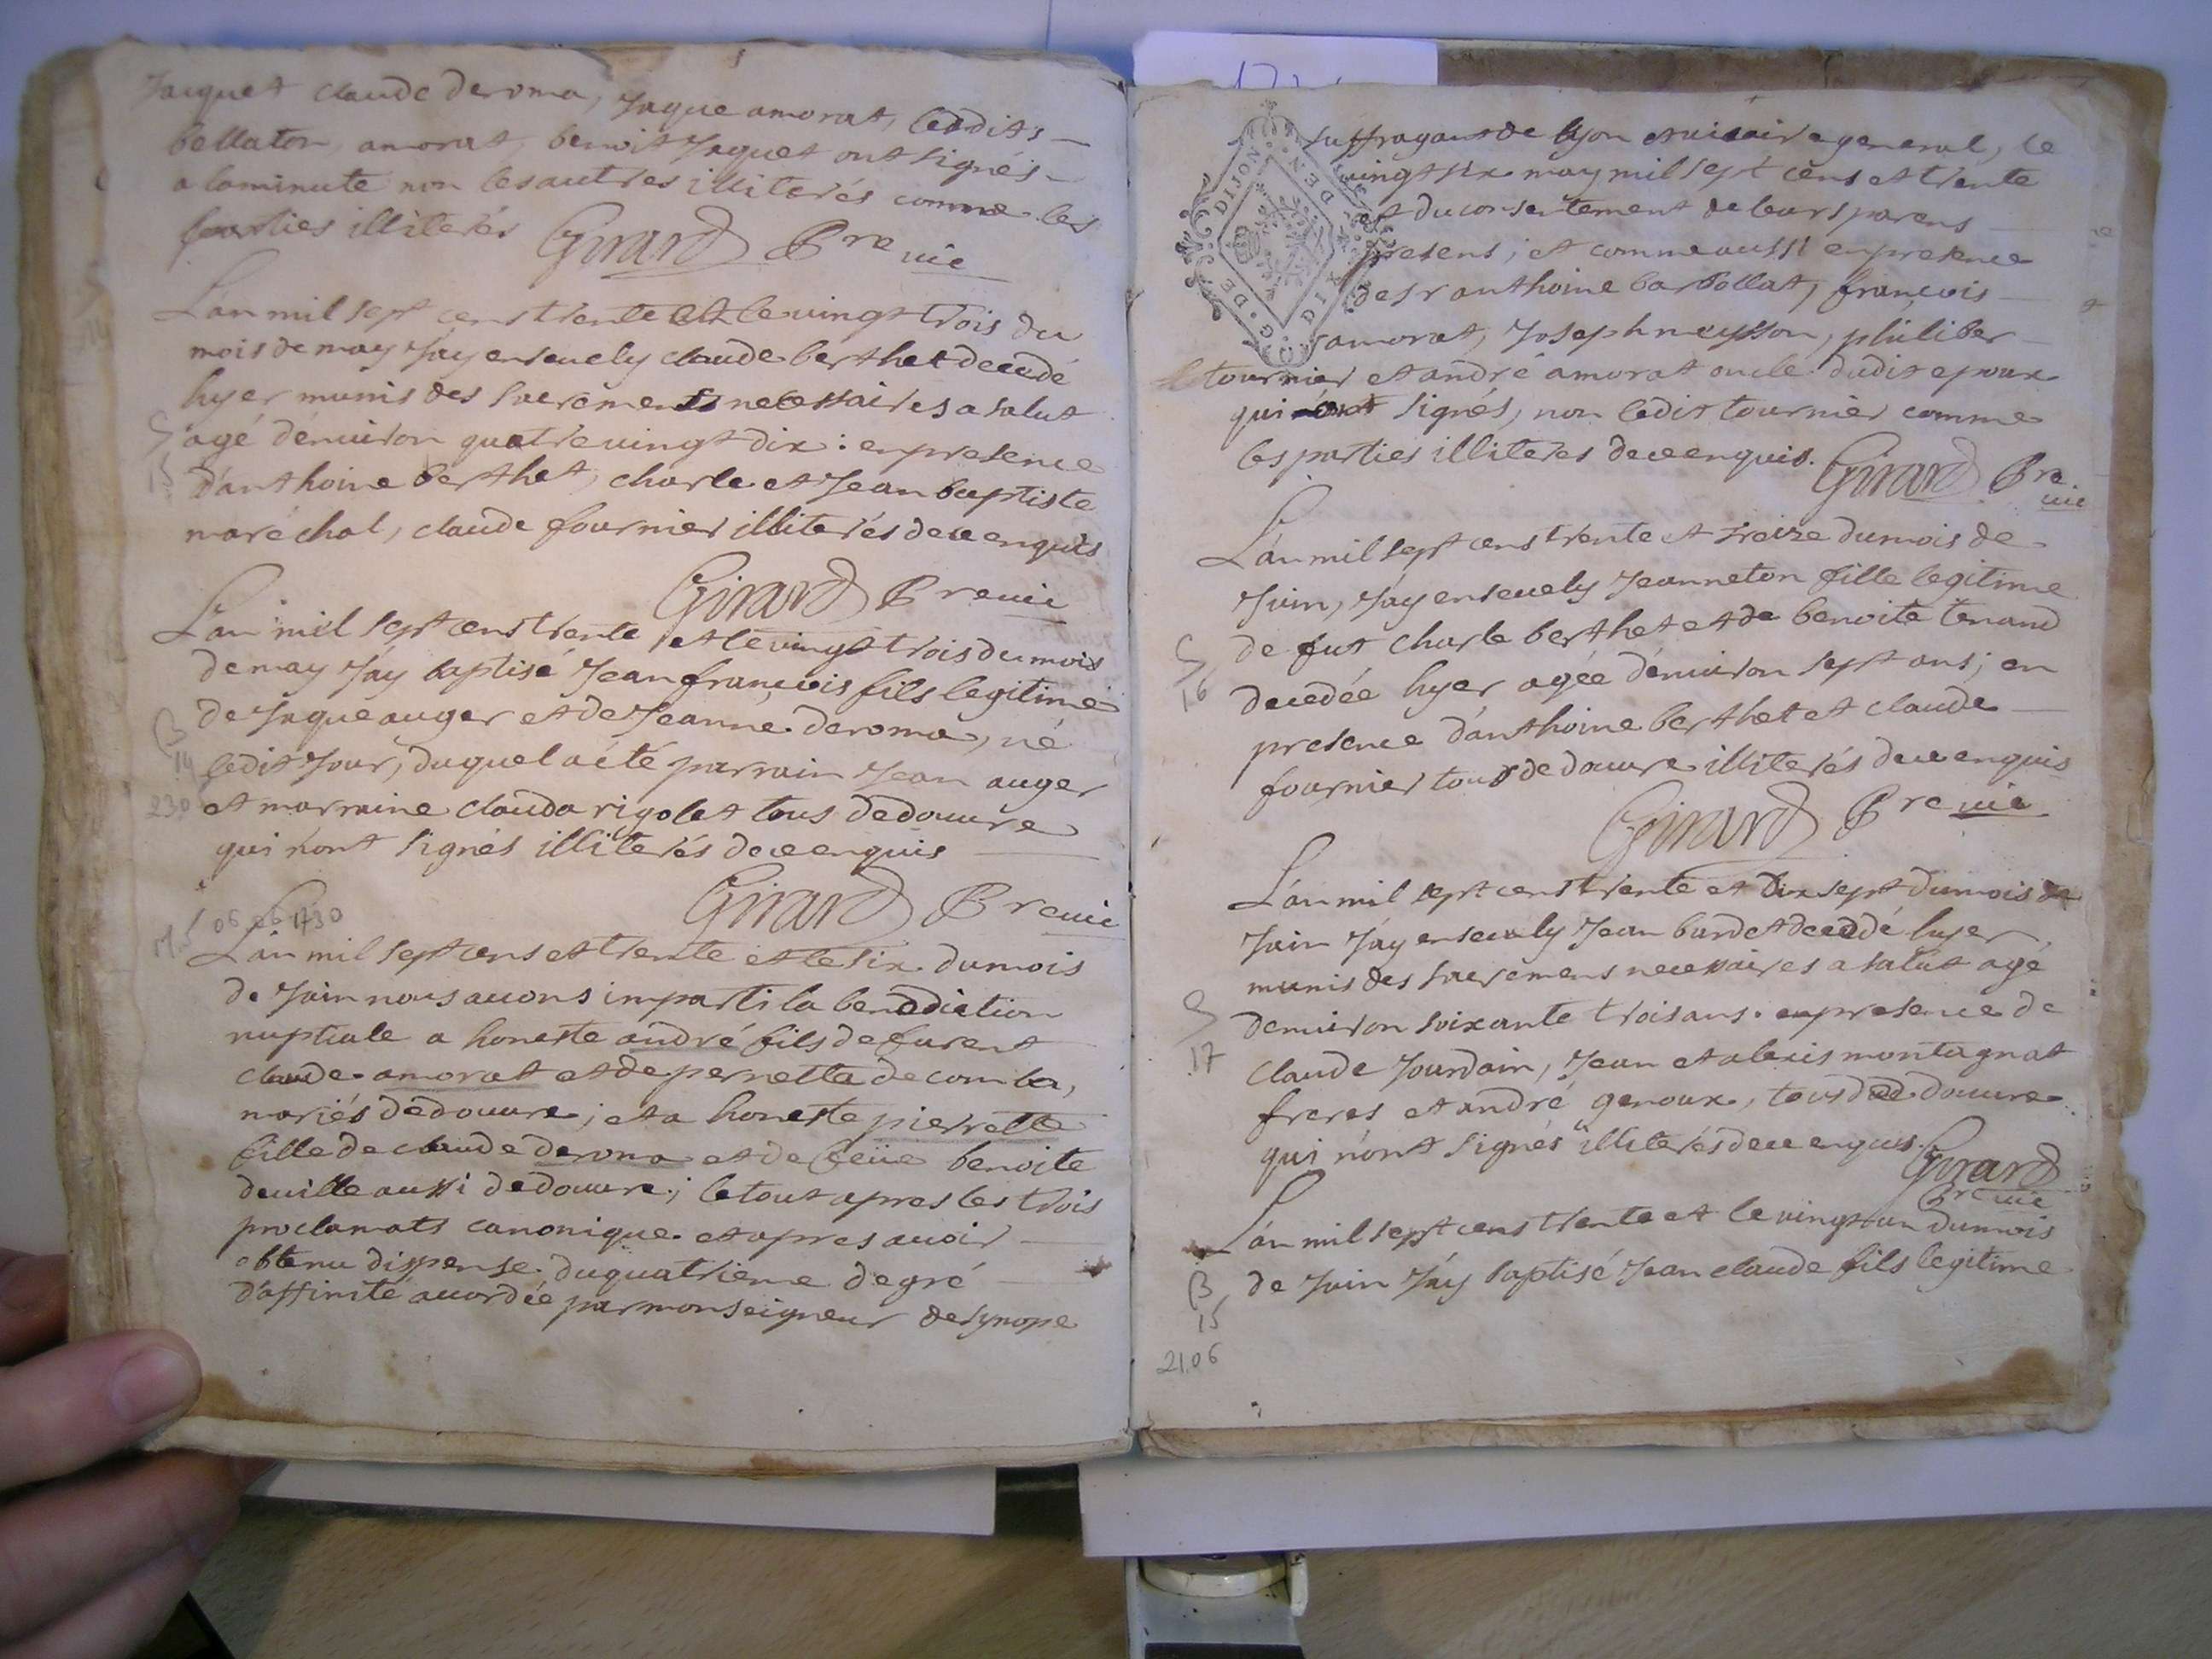 Jaquet claude deroma, Jaque amorat, lesdits
bellaton, amorat, benoit Jaquet ont signés
a laminute non lesautres illiterés comme les
parties illiterés Girard Pre vic
L'an mil sept cens trente et le vingt trois du
mois de may J'ay ensevely claude berthet decedé
hyer munis des sacremens necessaires a salut
agé d'enuiron quatre vingt dix: en presence
d'anthoine berthet, charle et Jean baptiste
maréchal, claude fournier illiterés de ce enquis
Girard Pre vic
S
15
L'an mil sept cens trente et le vingt trois du mois
de may J'ay baptisé Jean françois fils legitime
de Jaque auger et de Jeanne deroma, né
ledit Jour, duquel a été parrain Jean auger
et marraine clauda rigolet tous dedouure
qui n'ont signés illiterés de ce enquis
Girard Pre vic
B
14
230
06 06 1730
L'an mil sept cens et trente et le six du mois
de Juin nous auons imparti la benediction
nuptiale a honeste andré fils de furent
claude amorat et de pernetta decomba,
mariés dedouure; et a honeste pierrette
fille de claude deroma et de feüe benoite
deuille aussi dedouure; le tout apres les trois
proclamats canonique et apres auoir
obtenu dispense du quatrieme degré
d'affinité accordée par monseigneur de synope
DIJON
G. DE
suffragant de lyon et uicaire general, le
vingt six may mil sept cens et trente
et du consentement de leurs parens
presens; et comme aussi en presence
de sr anthoine barbollat, françois
amorat, Joseph meysson, philiber
tournier et andré amorat oncle dudit epoux
qui ont signés, non ledit tournier comme
les parties illiterés de ce enquis. Girard Pre
vic
L'an mil sept cens trente et treize du mois de
Juin, J'ay ensevely Jeanneton fille legitime
de fut charle berthet et de benoite tenand
decedée hyer agée d'enuiron sept ans; en
presence d'anthoine berthet et claude
fournier tous de douure illiterés de ce enquis
Girard Pre vic
S
16
L'an mil sept cens trente et dix sept du mois de
Juin J'ay ensevely Jean burdet decedé hyer,
munis des sacremens necessaires a salut agé
d'enuiron soixante trois ans. en presence de
claude Jourdain, Jean et alexis montagnat
freres et andré genoux, tous de douure
qui n'ont signés illiterés de ce enquis. Girard
Pre vic
S
17
L'an mil sept cens trente et le vingt un du mois
de Juin J'ay baptisé Jean claude fils legitime
B
15
21.06